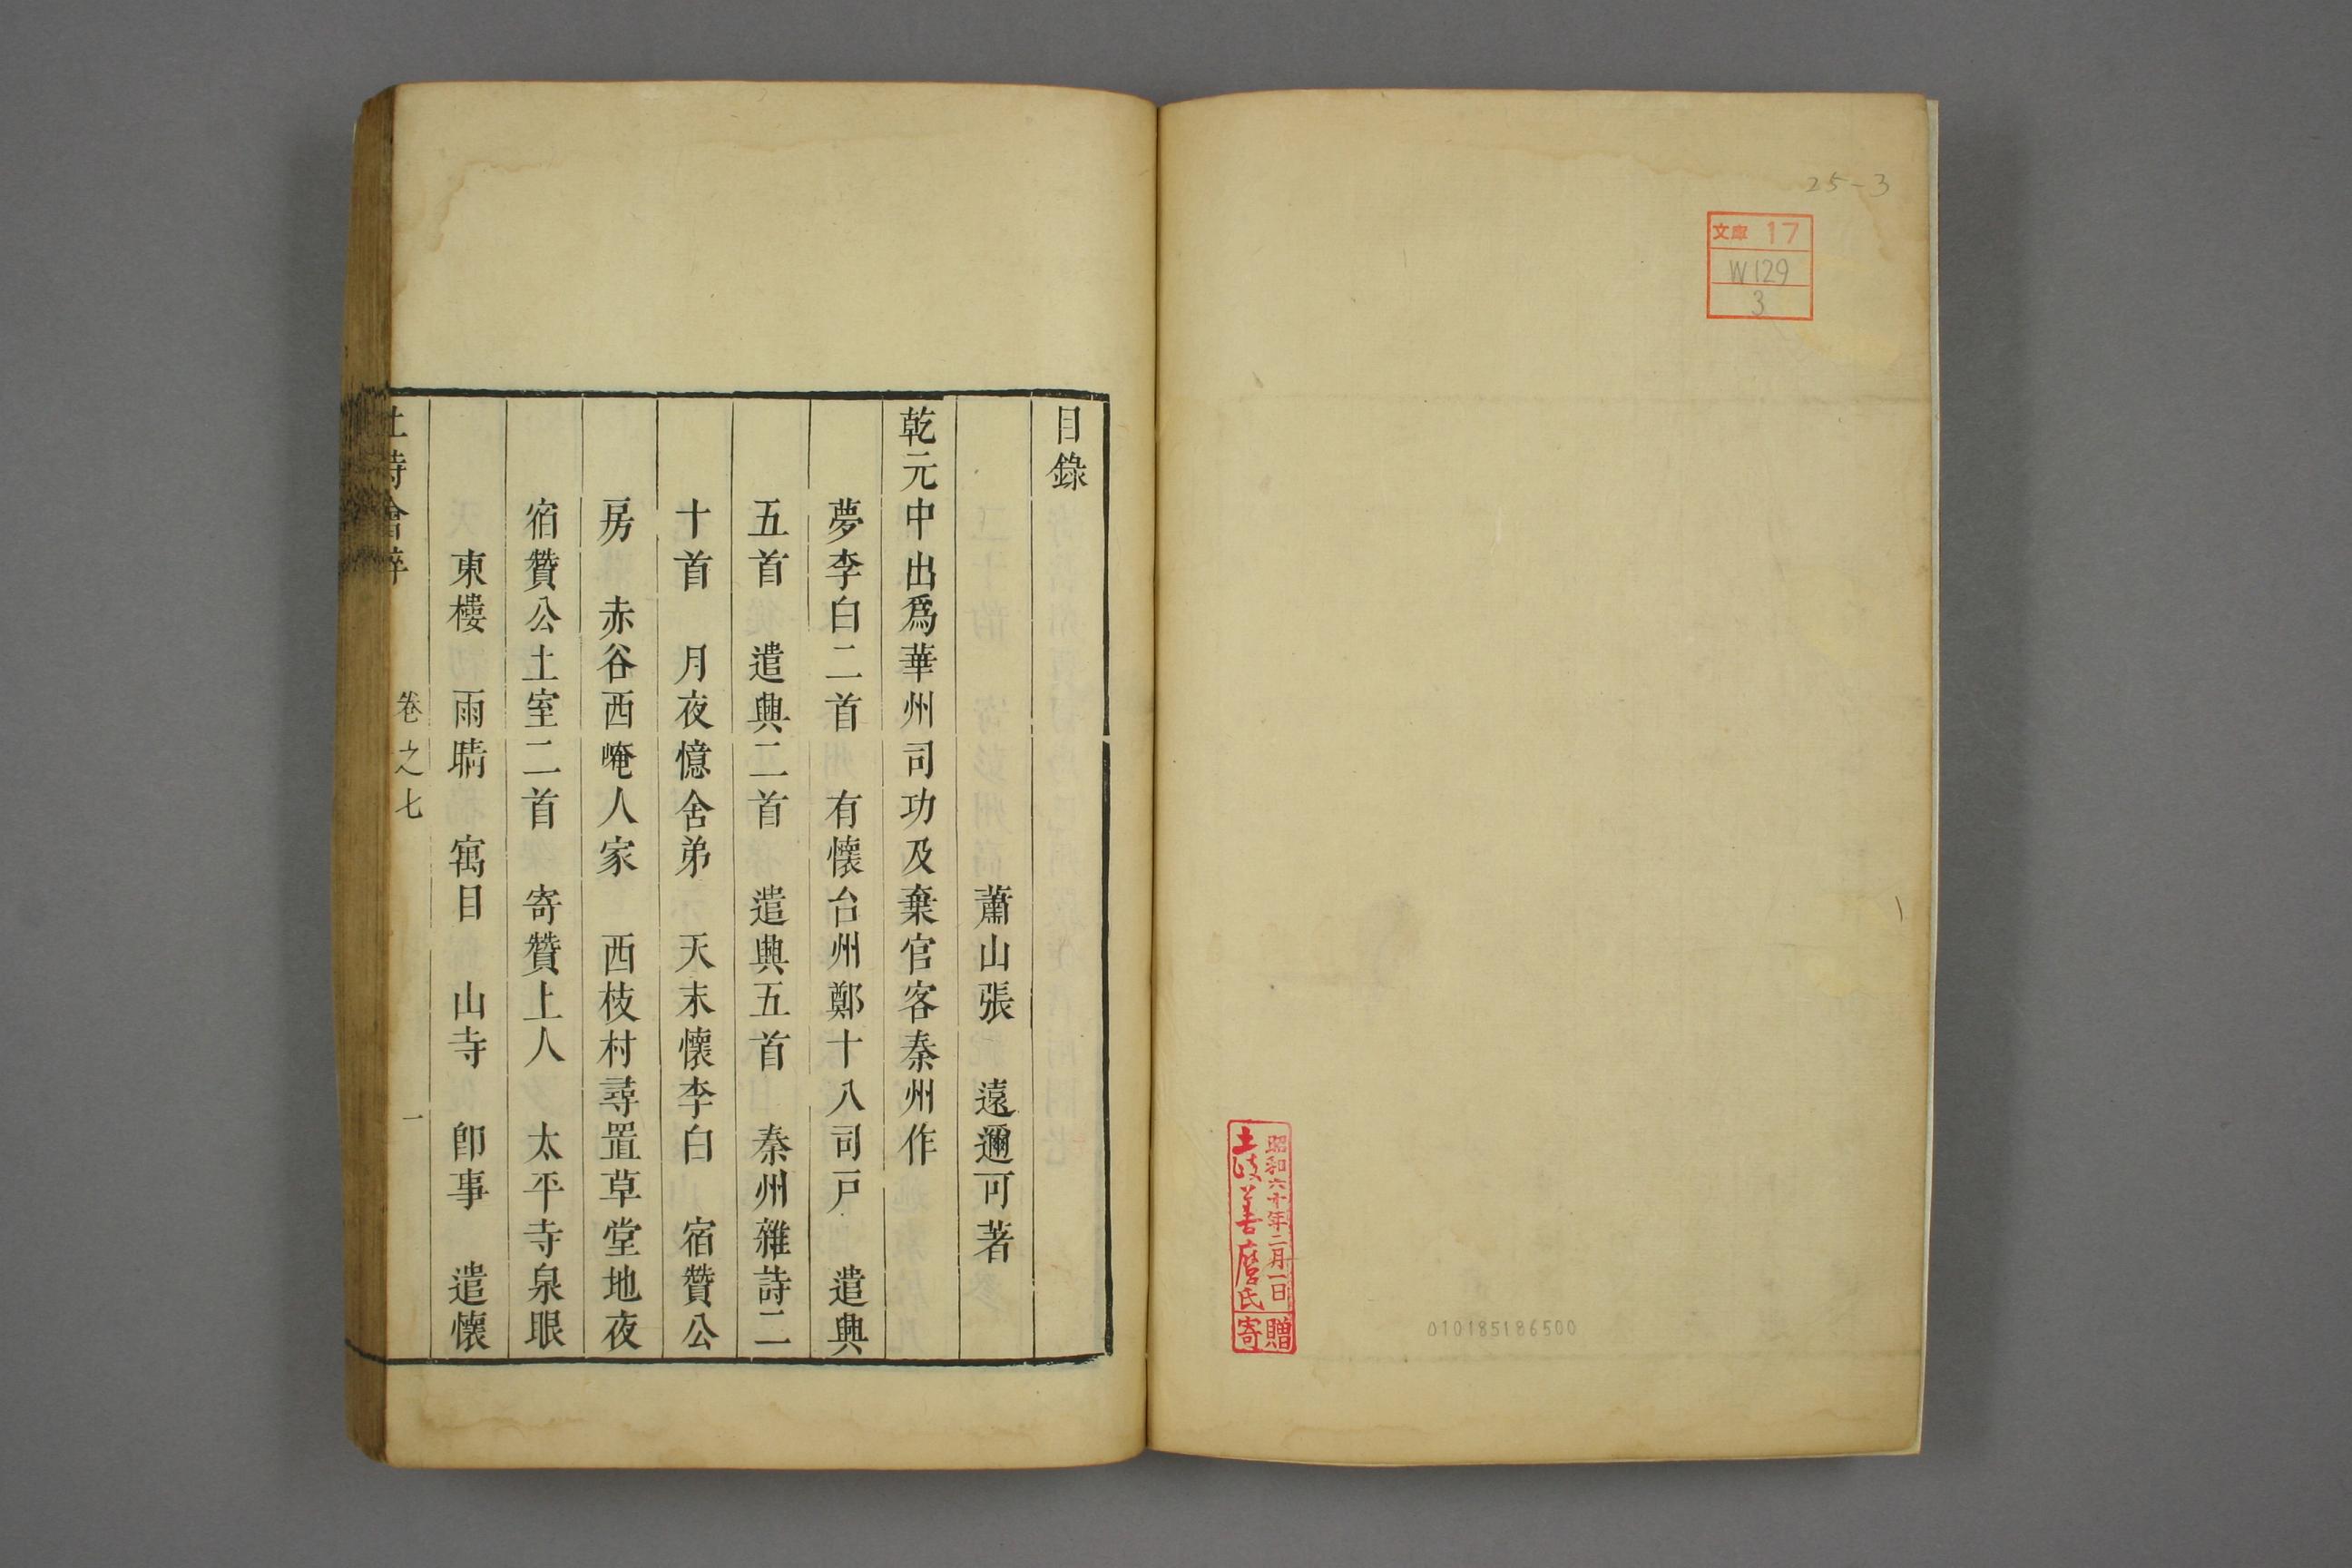 25-3
文庫 17
W129
3
昭和六十年二月一日
土岐善麿氏
寄贈
010185186500
目錄
蕭山張　遠邇可著
乾元中出爲華州司功及棄官客秦州作
夢李白二首　有懷台州鄭十八司戸　遣興
五首　遣興二首　遣興五首　秦州雜詩二
十首　月夜憶舍弟　天末懷李白　宿贊公
房　赤谷西崦人家　西枝村尋置草堂地夜
宿贊公土室二首　寄贊上人　太平寺泉眼
東樓　雨晴　寓目　山寺　卽事　遣懷
杜詩會稡　卷之七　一